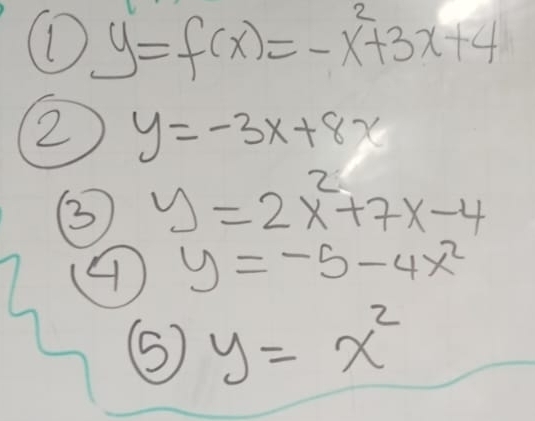 ① y=f(x)=-x²+3x+4
② y=-3x+8x
③ y=2x²+7x-4
④ y=-5-4x²
⑤ y=x²